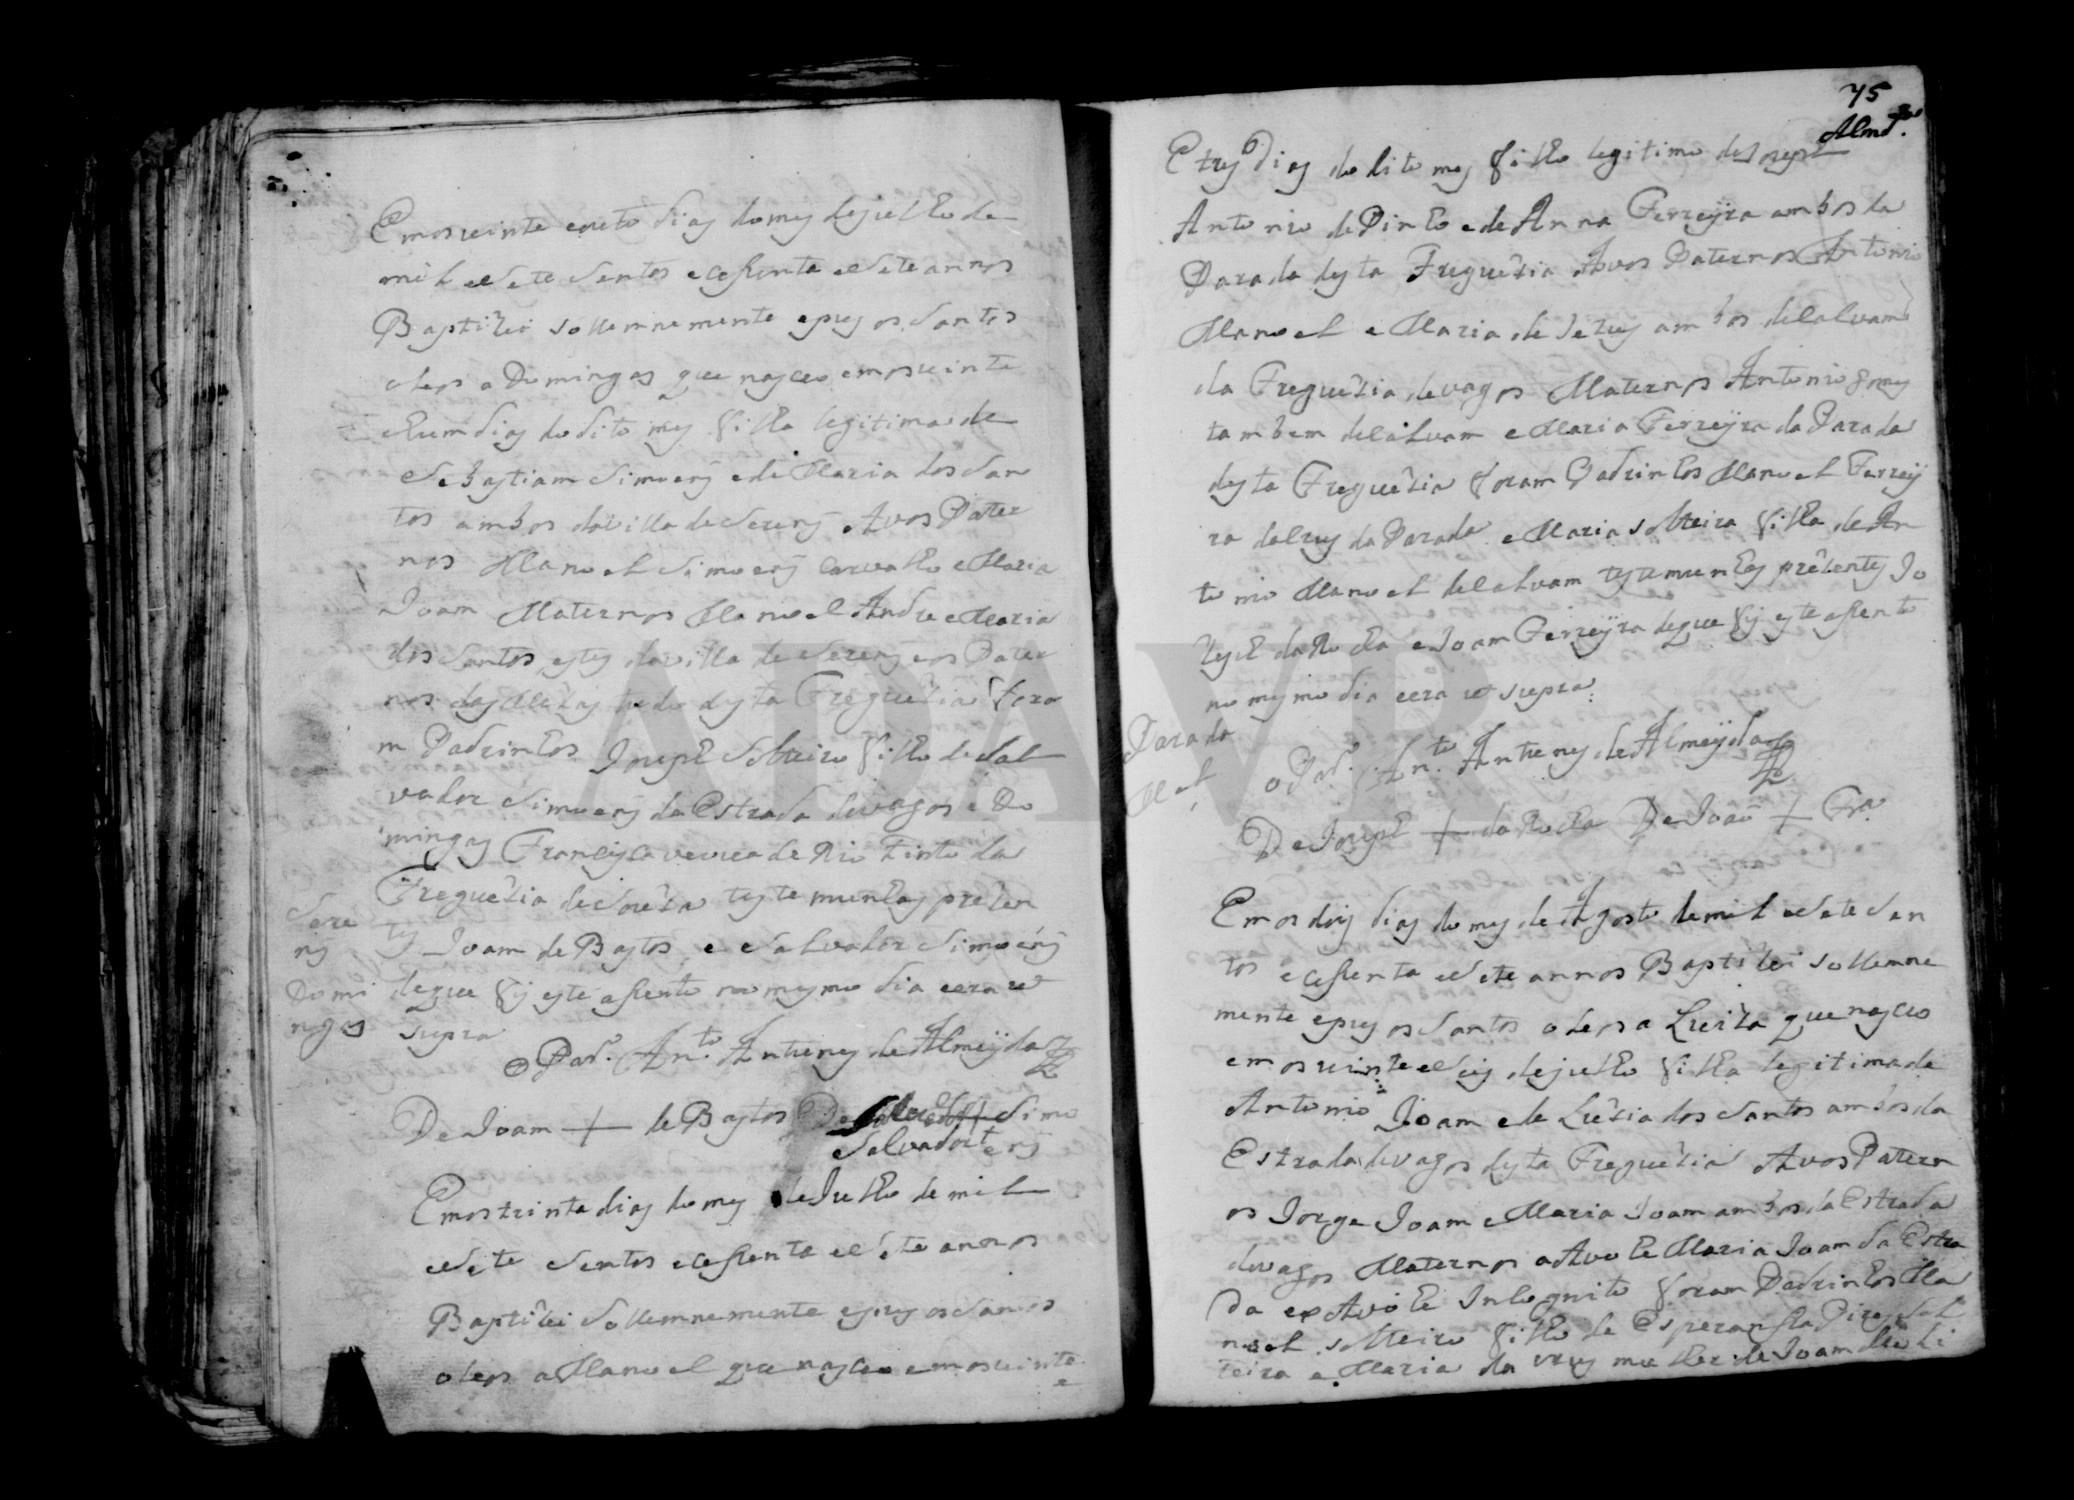 Emos vinte e outo dias do mes de julho de
mil e sete sentos e cessenta e sete annos
Baptizei sollemnemente e pus os santos
oleos a Domingas que nasceo emos vinte
e hum dias do dito mes filha legitima de
Sebastiam Simoens e de Maria dos San
tos ambos da villa de Serens Avos Pater
nos Manoel Simoens Carvalho e Maria
Joam Maternos Manoel Andre e Maria
dos Santos estes da villa de Serens e os Pater
nos das Mesas tudo desta Freguezia Fora
m Padrinhos Joseph solteiro filho de Sal
vador Simoens da Estrada de vagos e Do
mingas Francisca veuva de Rio Tinto da
Freguezia de Soza testemunhas prezen
tes Joam de Bastos e Salvador Simoens
de que fis este asento no mesmo dia e era ut
supra
Sere
ns
Domi
ngas
o Par. An.to Antunes de Almeyda
De Joam + de Bastos De Salvador + Simo
ens
Emos trinta dias do mes de Julho de mil
e sete sentos e cessenta e sete annos
Baptizei sollemnemente e pus os santos
oleos a Manoel que nasceo emos vinte
e
75
Almd.a
E tres dias do dito mes filho legitimo de Joseph
Antonio de Pinho e de Anna Ferreyra ambos da
Parada desta Freguezia Avos Paternos Antonio
Manoel e Maria de Jezus ambos de Calvam
da Freguezia de vagos Maternos Antonio Gomes
tambem de Calvam e Maria Ferreyra da Parada
desta Freguezia foram Padrinhos Manoel Ferrey
ra da Crus da Parada e Maria solteira filha de An
tonio Manoel de Calvam testemunhas prezentes Jo
zeph da Rocha e Joam Ferreyra de que fis este asento
no mesmo dia e era ut supra
Parada
M.el
o Par. An.to Antunes de Almeyda
De Joseph + da Rocha De Joaõ + Fr.a
Emos dois dias do mes de Agosto de mil e sete sen
tos e cessenta e sete annos Baptizei sollemne
mente e pus os santos oleos a Luiza que nasceo
emos vinte e seis de julho filha legitima de
Antonio Joam e de Luzia dos Santos ambos da
Estrada de vagos desta Freguezia Avos Patern
os Jorge Joam e Maria Joam ambos da Estrada
de vagos Maternos a Avo he Maria Joam da Estra
da e o Avo he Incognito foram Padrinhos Ma
noel solteiro filho de Esperansa Pires sol
teira e Maria da crus molher de Joam